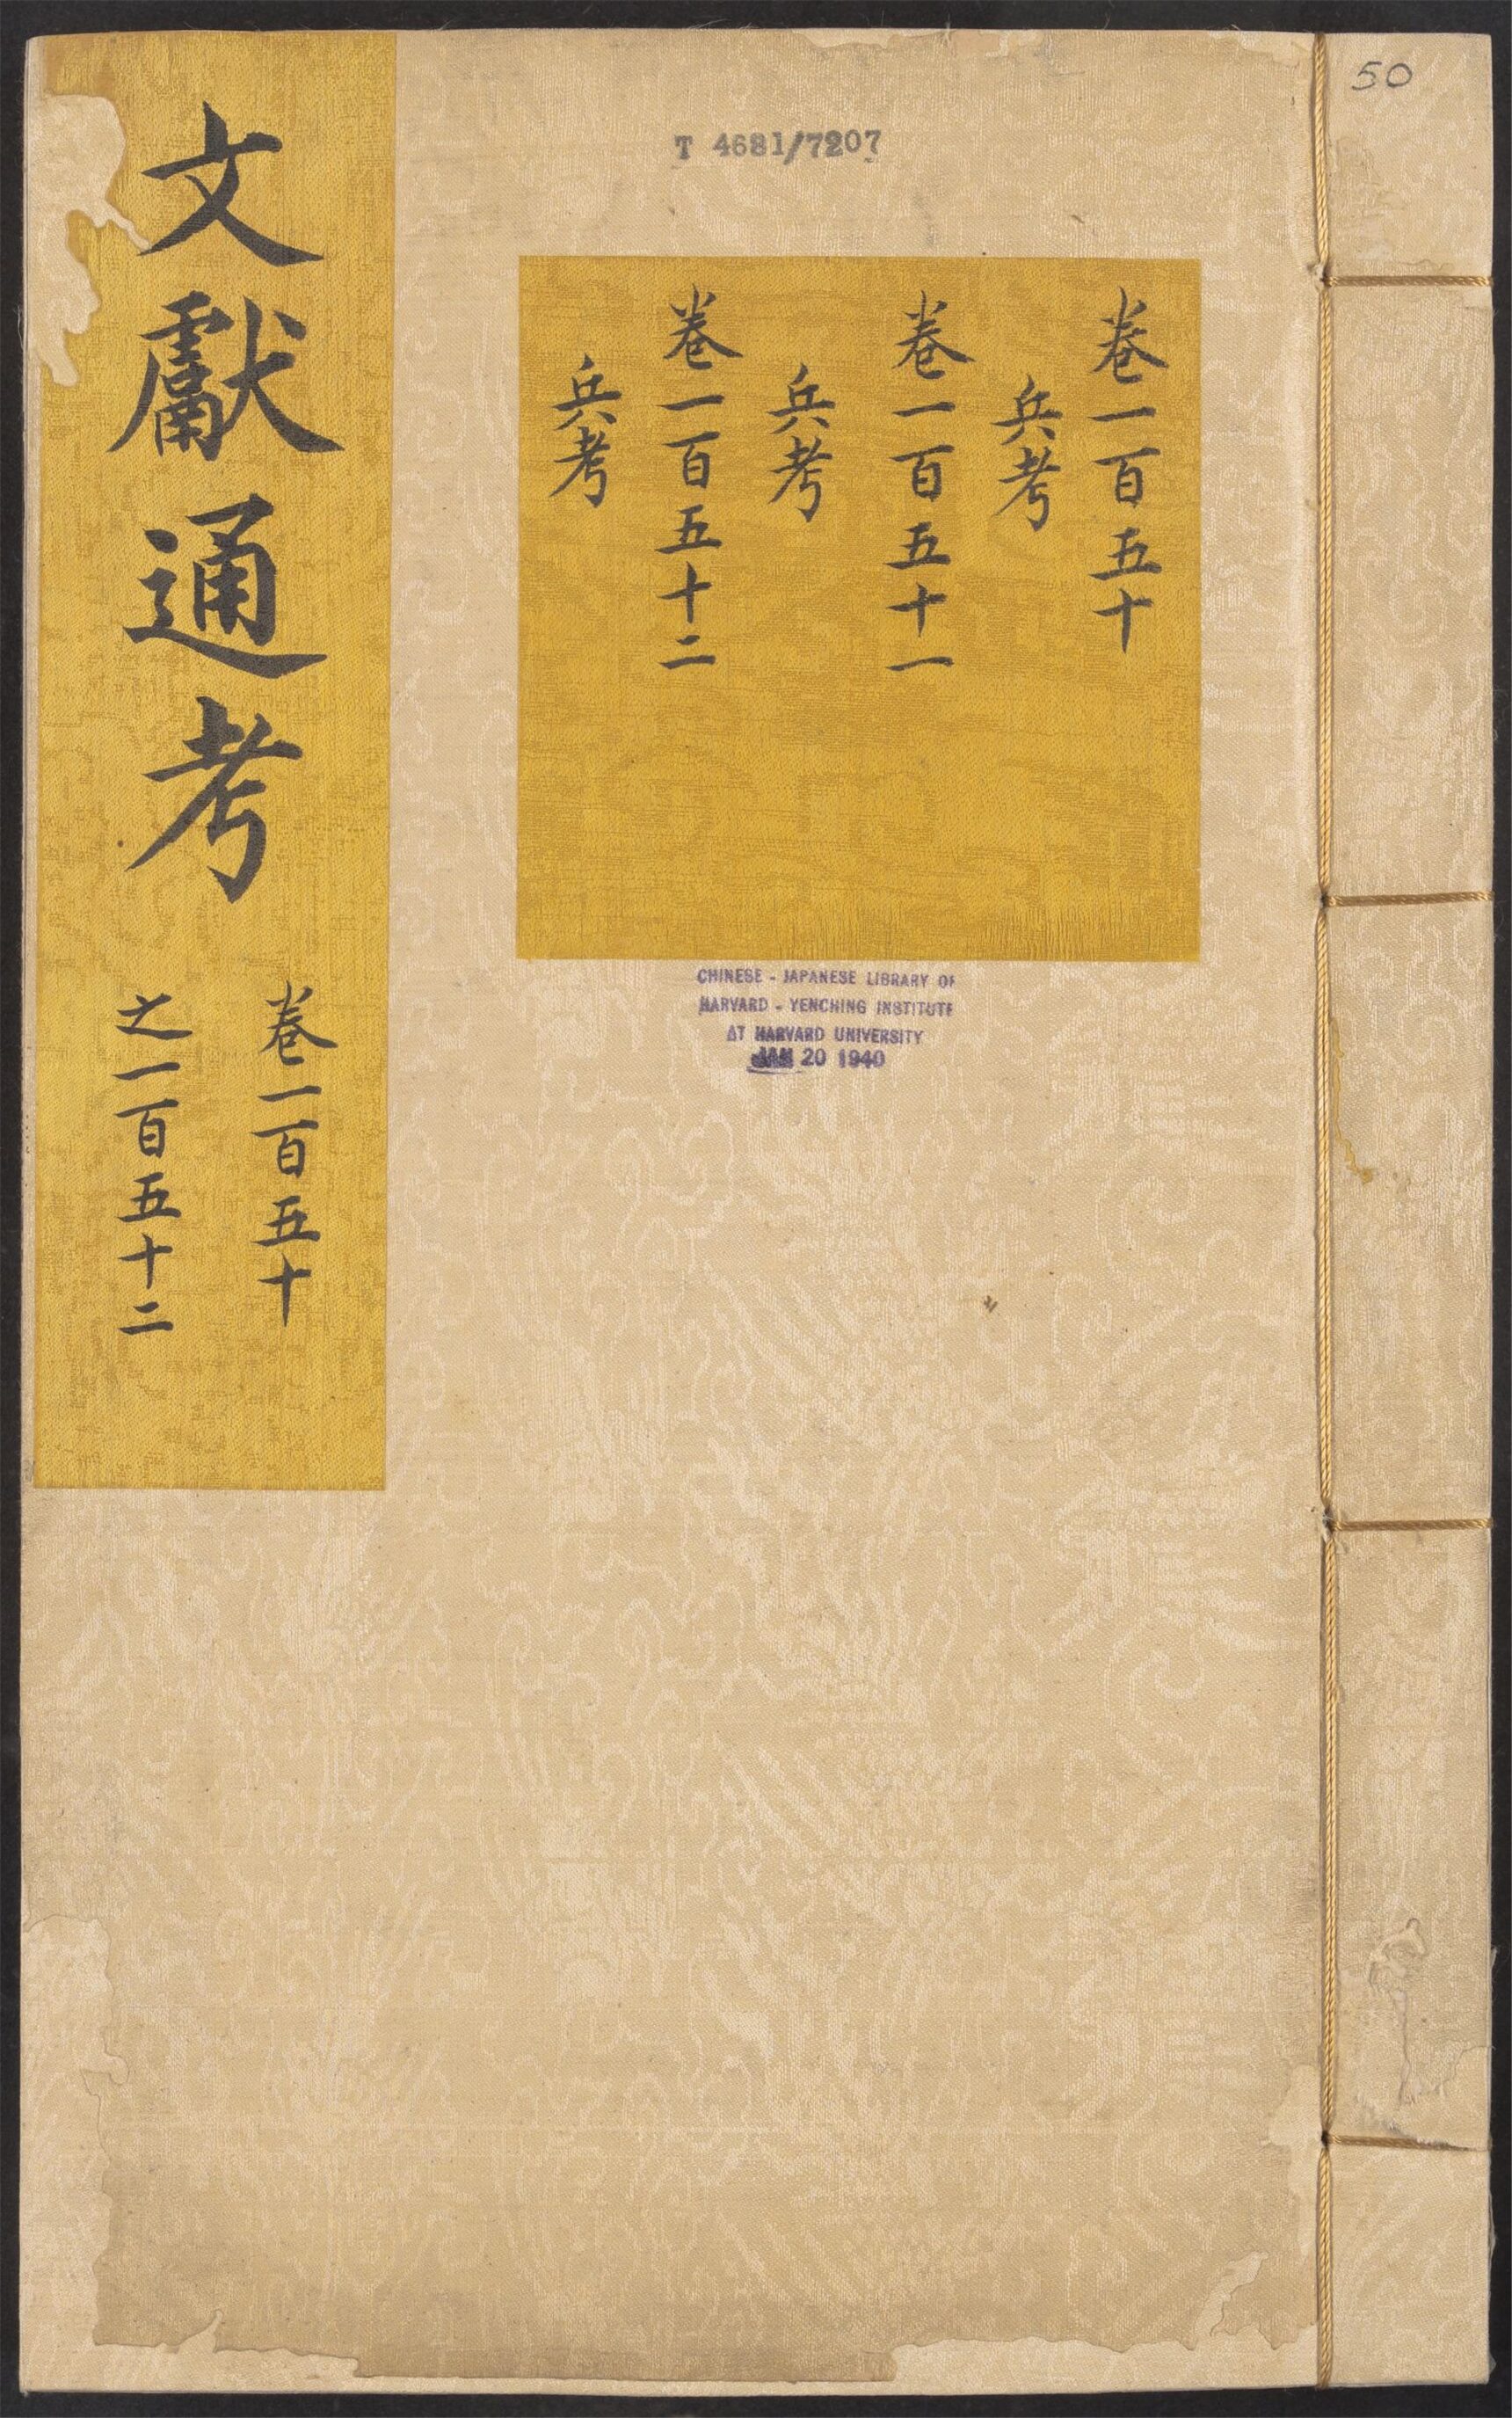 50
T 4681/7207
卷一百五十
兵考
卷一百五十一
兵考
卷一百五十二
兵考
文獻通考
卷一百五十
之一百五十二
CHINESE - JAPANESE LIBRARY OF
HARVARD - YENCHING INSTITUTE
AT HARVARD UNIVERSITY
JAN 20 1940